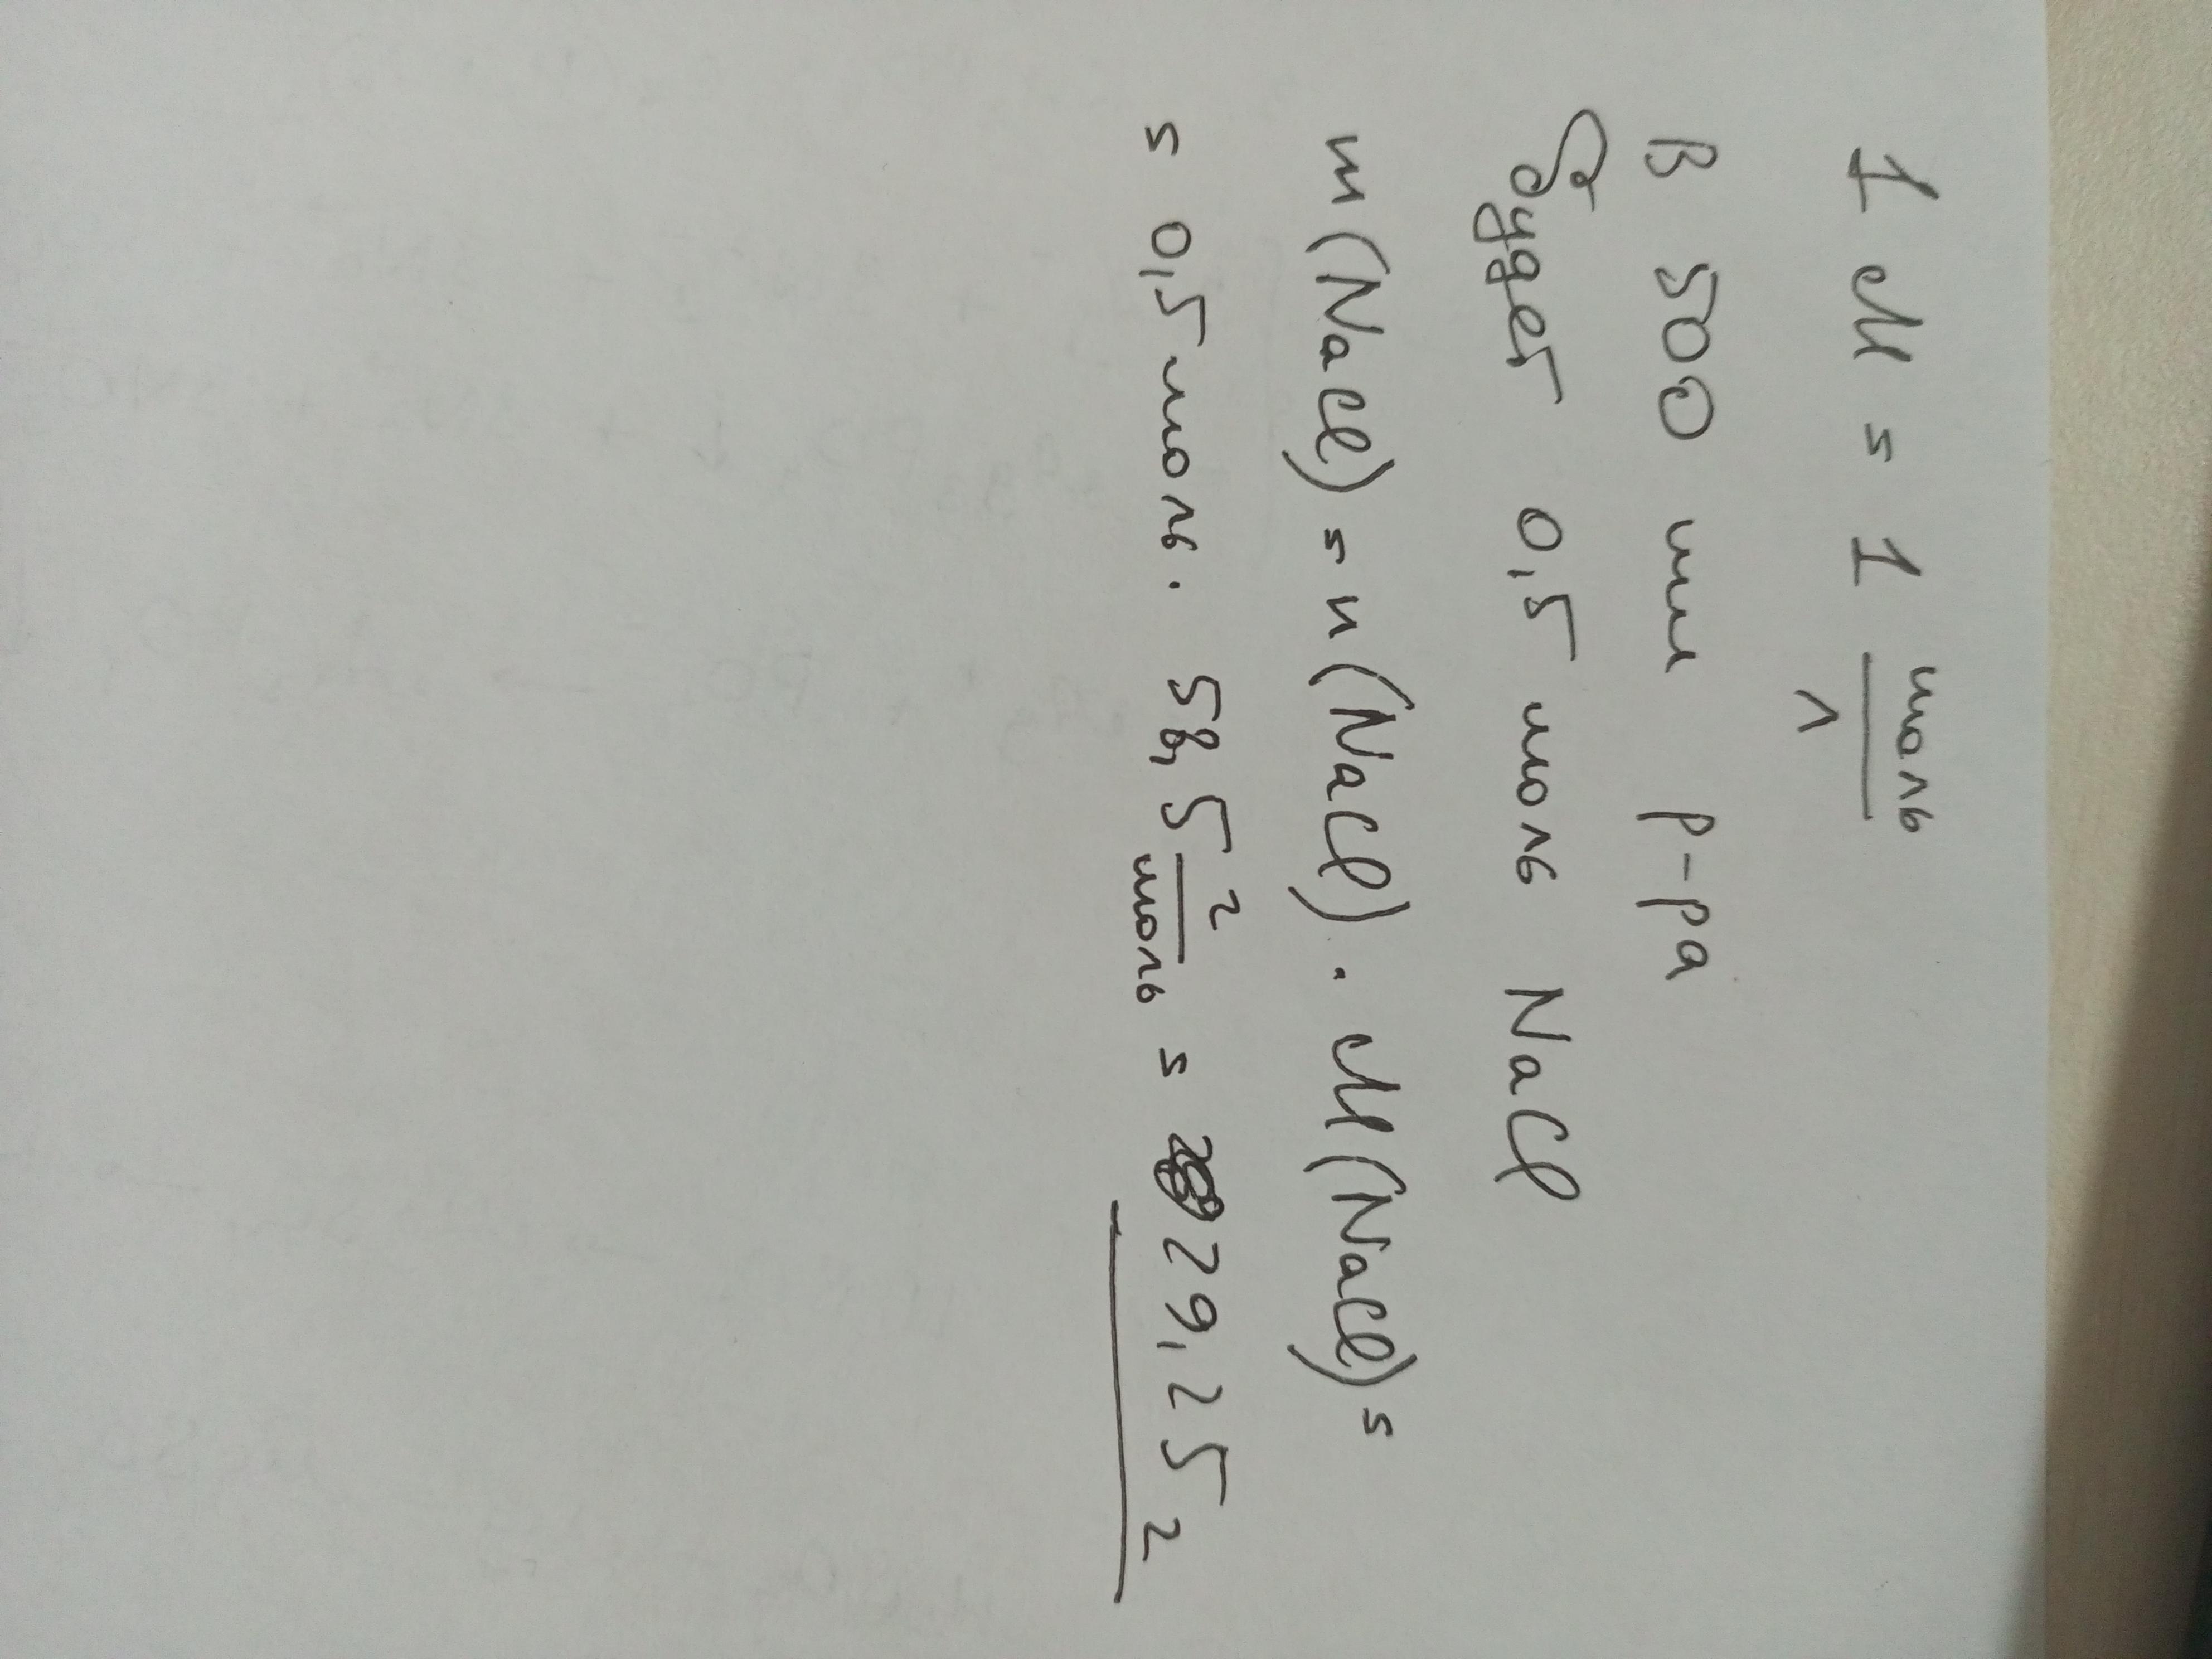 1 М = 1 моль/л
В 500 мл р-ра
будет 0,5 моль NaCl
m(NaCl) = n(NaCl) · M(NaCl) =
= 0,5 моль · 58,5 г/моль = 29,25 г